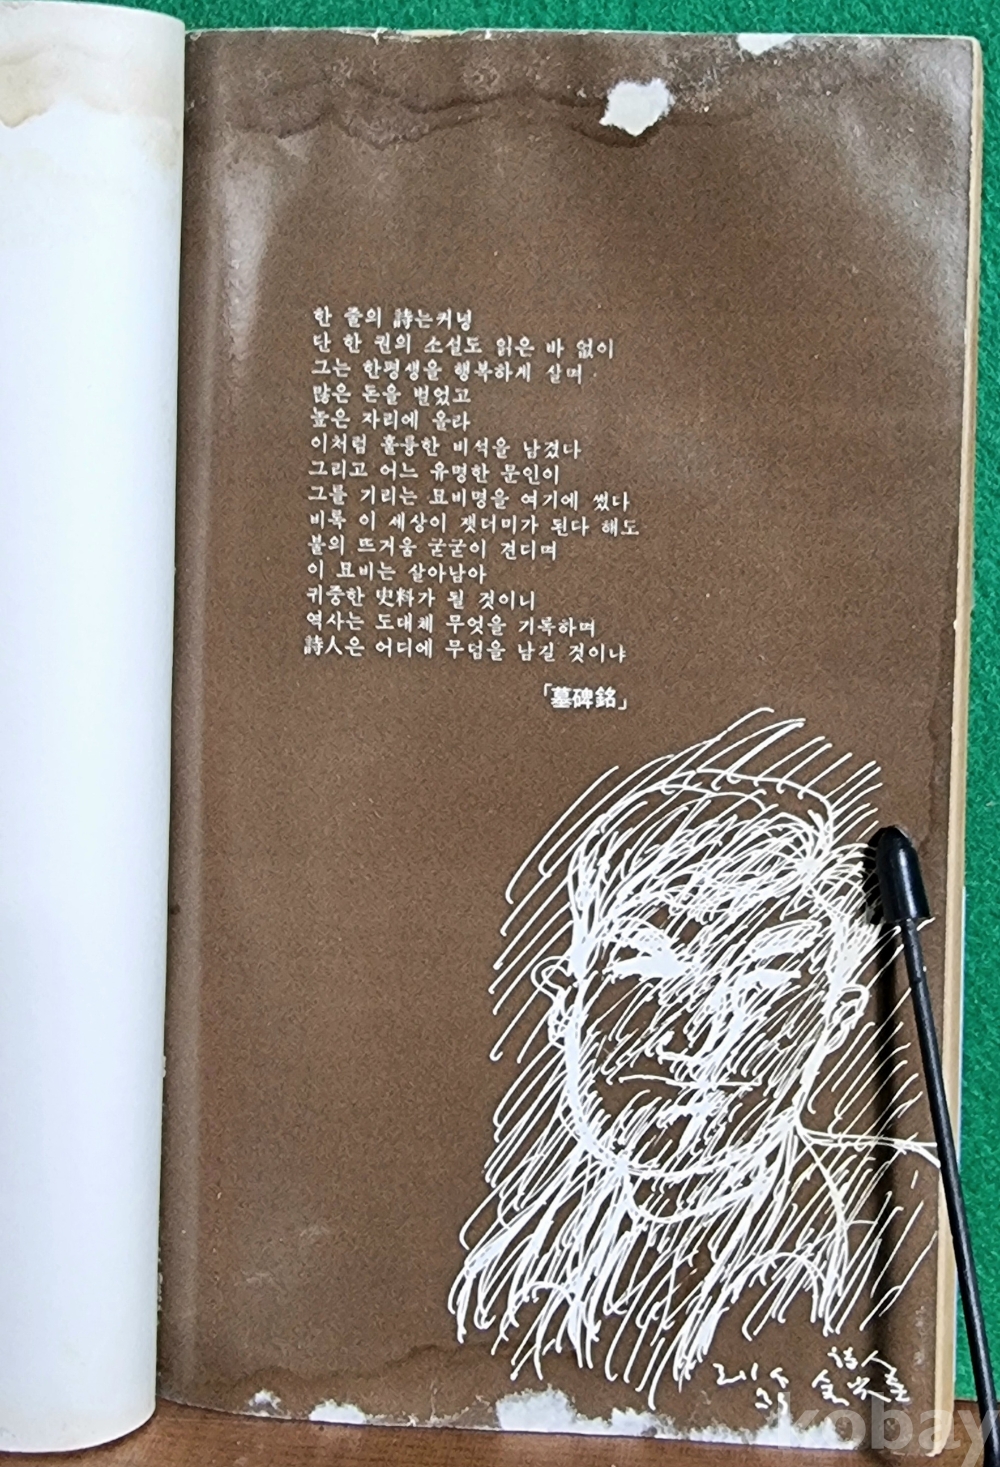 한 줄의 詩는커녕
단 한 권의 소설도 읽은 바 없이
그는 한평생을 행복하게 살며
많은 돈을 벌었고
높은 자리에 올라
이처럼 훌륭한 비석을 남겼다
그리고 어느 유명한 문인이
그를 기리는 묘비명을 여기에 썼다
비록 이 세상이 잿더미가 된다 해도
불의 뜨거움 굳굳이 견디며
이 묘비는 살아남아
귀중한 史料가 될 것이니
역사는 도대체 무엇을 기록하며
詩人은 어디에 무덤을 남길 것이냐
「墓碑銘」
詩人
kobay